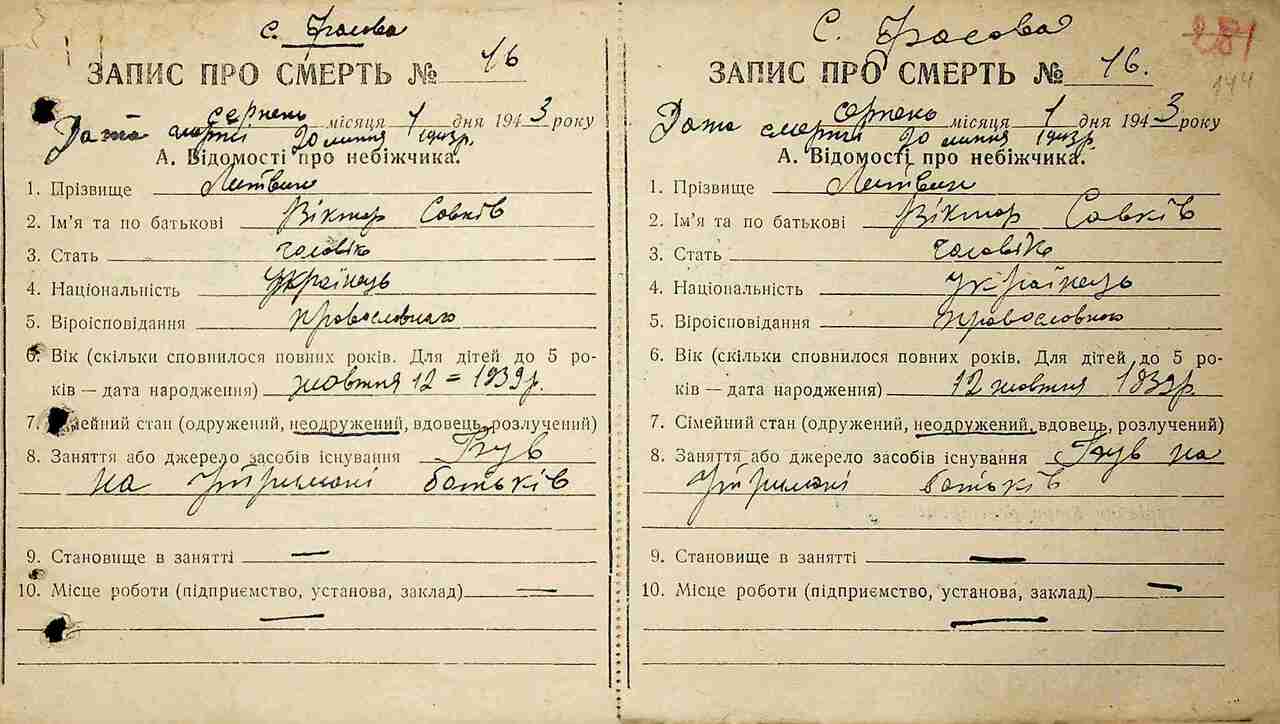 с. Фрасова
ЗАПИС ПРО СМЕРТЬ № 16
серпень місяця 1 дня 1943 року
Дата смерті 20 липня 1943р.
А. Відомості про небіжчика.
1. Прізвище Литвин
2. Ім'я та по батькові Віктор Савків
3. Стать чоловік
4. Національність українець
5. Віроісповідання православного
6. Вік (скільки сповнилося повних років. Для дітей до 5 ро-
ків — дата народження) жовтня 12 = 1939р.
7. Сімейний стан (одружений, неодружений, вдовець, розлучений)
8. Заняття або джерело засобів існування Був
на утриманні батьків
9. Становище в занятті —
10. Місце роботи (підприємство, установа, заклад) —
—
С. Фрасова
281
144
ЗАПИС ПРО СМЕРТЬ № 16.
серпень місяця 1 дня 1943 року
Дата смерти 20 липня 1943р.
А. Відомості про небіжчика.
1. Прізвище Литвин
2. Ім'я та по батькові Віктор Савків
3. Стать чоловік
4. Національність українець
5. Віроісповідання православного
6. Вік (скільки сповнилося повних років. Для дітей до 5 ро-
ків — дата народження) 12 жовтня 1939р.
7. Сімейний стан (одружений, неодружений, вдовець, розлучений)
8. Заняття або джерело засобів існування Був на
утриманні батьків
9. Становище в занятті —
10. Місце роботи (підприємство, установа, заклад) —
—